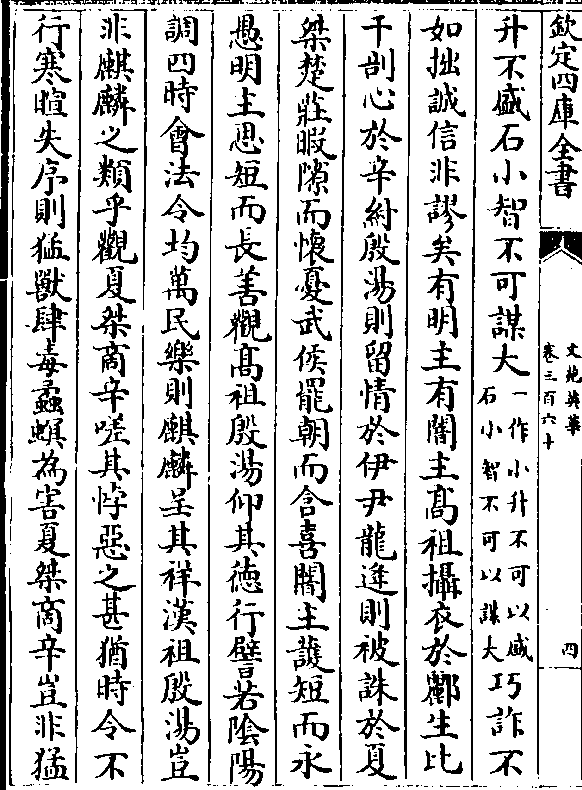 欽定四庫全書
文苑英華
卷三百六十
四
升不盛石小智不可謀大一作小升不可以盛石小智不可以謀大巧詐不
如拙誠信非謬矣有明主有闇主高祖攝衣於酈生比
干剖心於辛紂殷湯則留情於伊尹龍逄則被誅於夏
桀楚莊暇隙而懷憂武侯罷朝而含喜闇主護短而永
愚明主思短而長善觀高祖殷湯仰其德行譬若陰陽
調四時會法令均萬民樂則麒麟呈其祥漢祖殷湯豈
非麒麟之類乎觀夏桀商辛嗟其悖惡之甚猶時令不
行寒暄失序則猛獸肆毒蟊螟為害夏桀商辛豈非猛